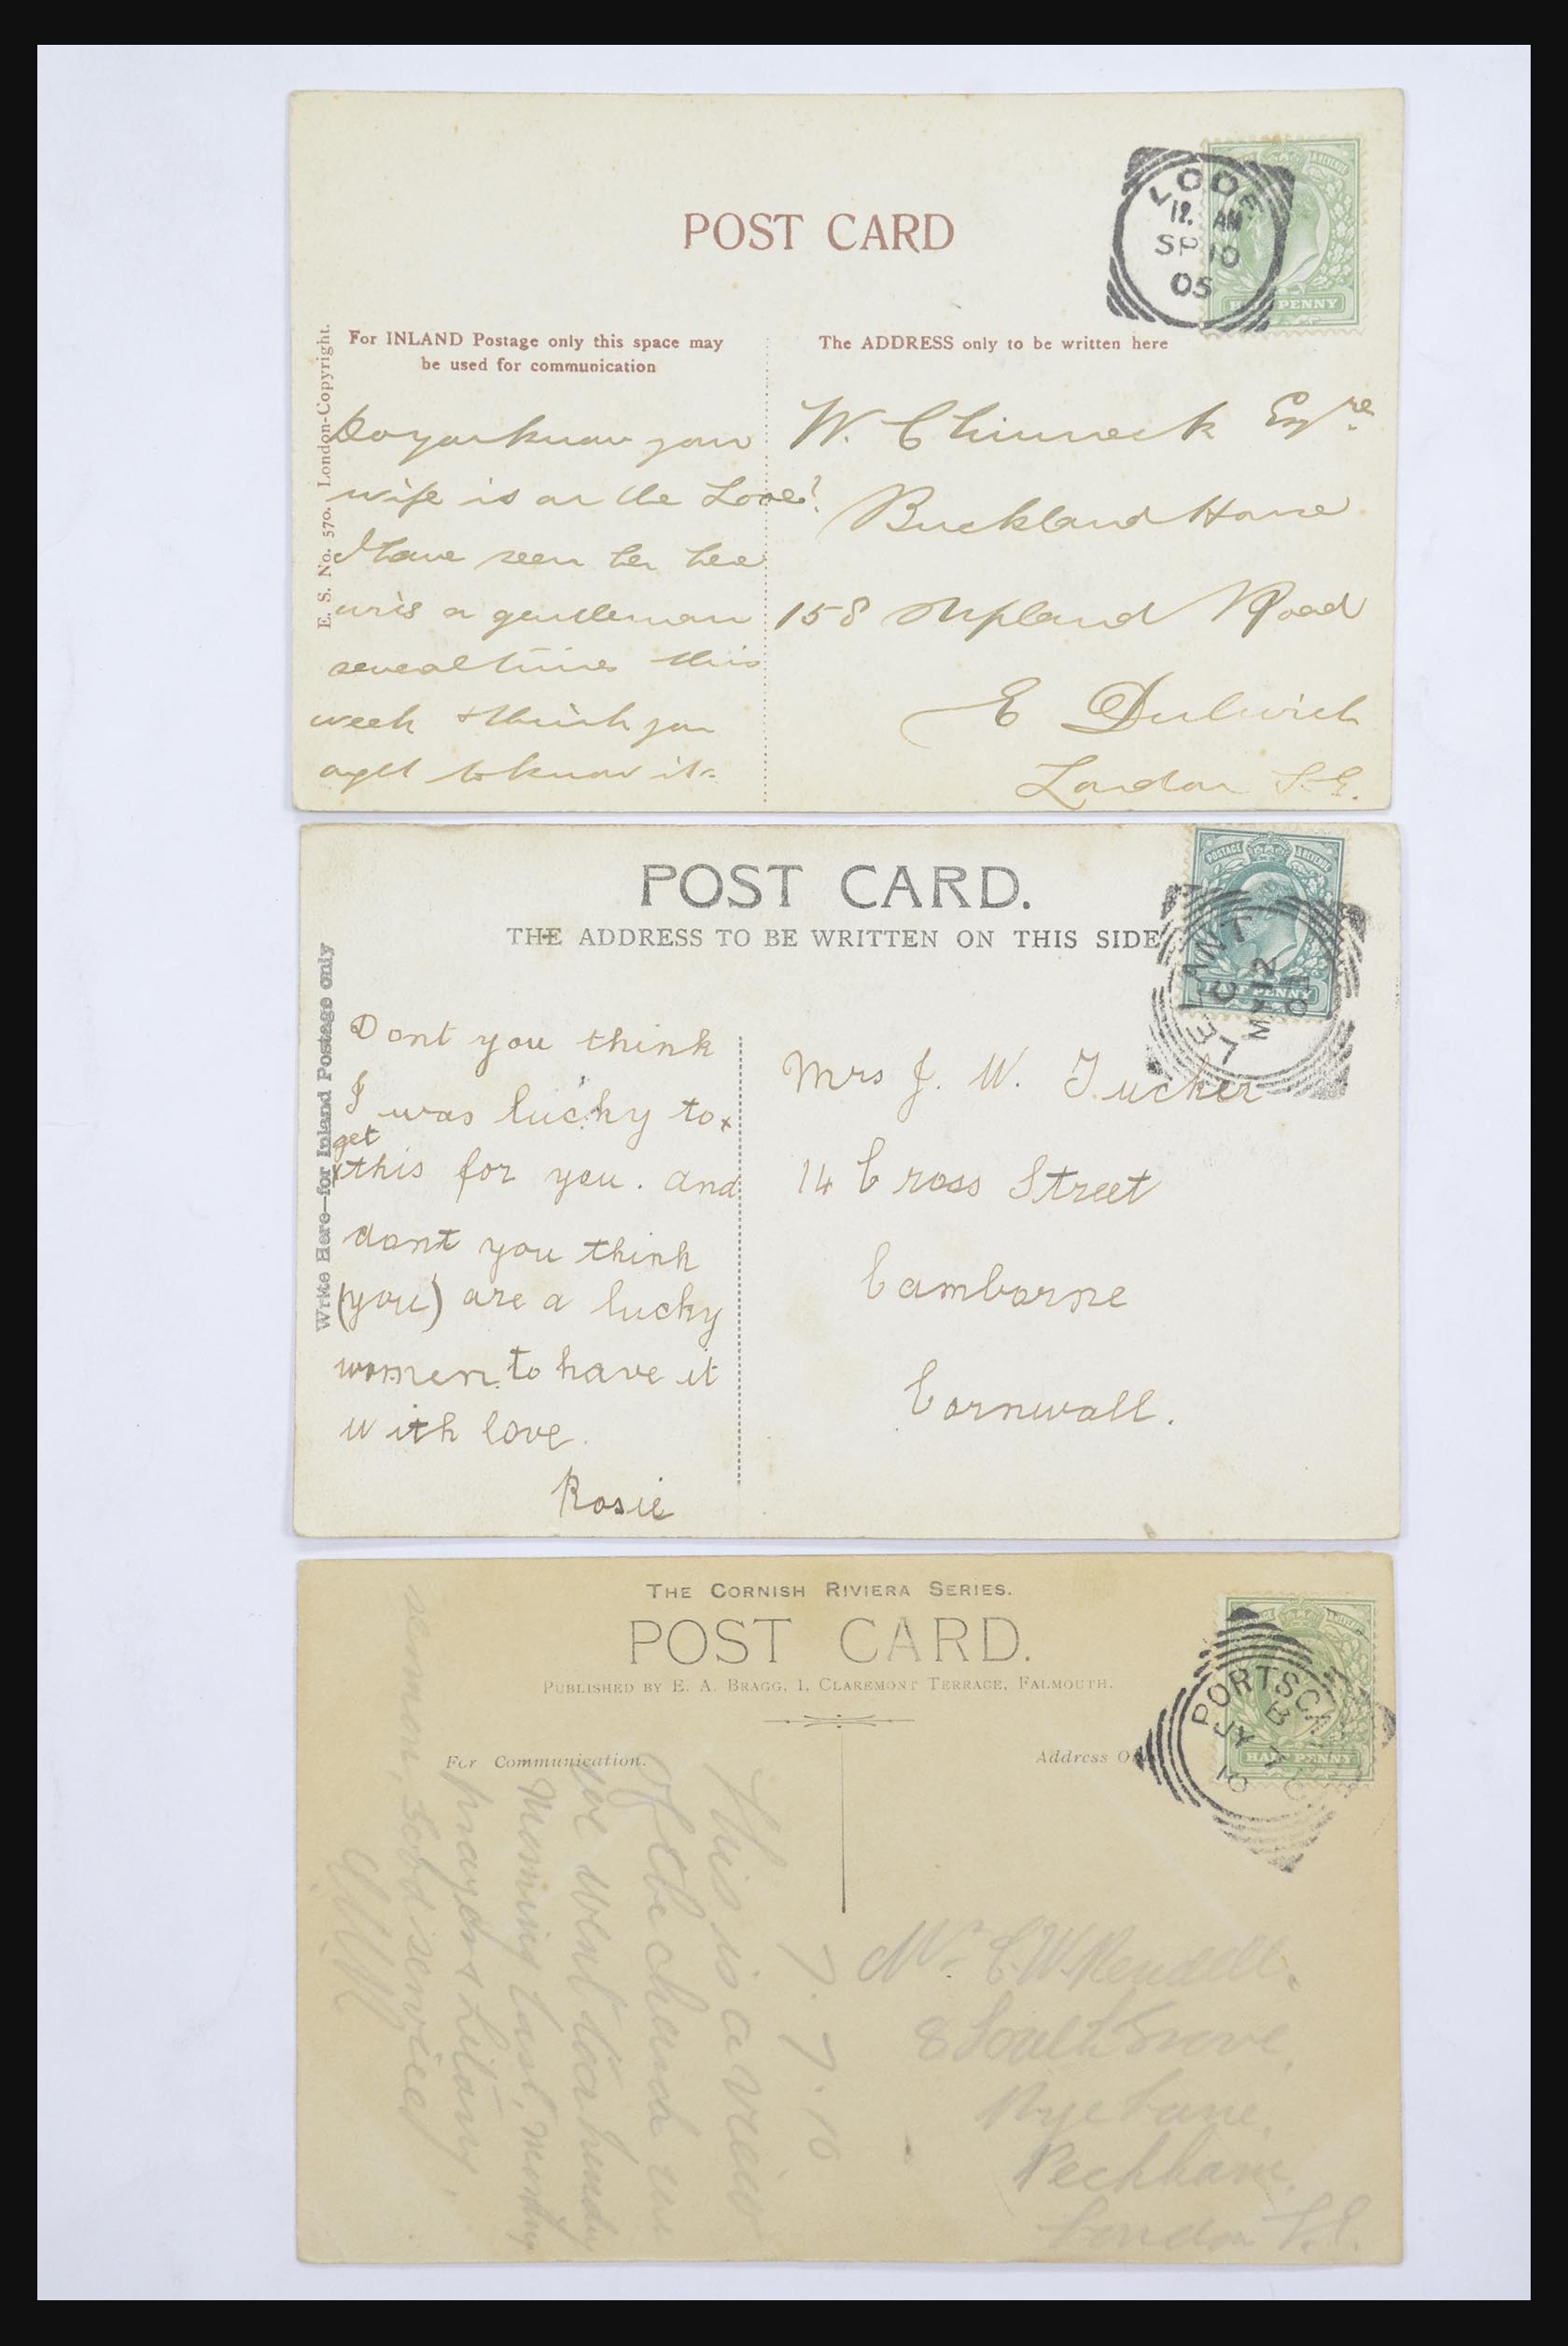 POST CARD
LOOE
12. AM
SP 10
05
HALFPENNY
E. S. No. 570. London-Copyright.
For INLAND Postage only this space may
be used for communication
The ADDRESS only to be written here
Do you know your
wife is on the Looe?
I have seen her here
with a gentleman
several times this
week & think you
ought to know it.
W. Chinneck Esqre.
Buckland House
158 Upland Road
E Dulwich
London S.E.
POST CARD.
THE ADDRESS TO BE WRITTEN ON THIS SIDE
POSTAGE & REVENUE
HALFPENNY
LELANT
C
MY 12
Write Here—for Inland Postage only
Dont you think
I was lucky to x
get
x this for you. and
dont you think
(you) are a lucky
women to have it
with love.
Rosie
Mrs J. W. Tucker
14 Cross Street
Camborne
Cornwall.
THE CORNISH RIVIERA SERIES.
POST CARD.
PUBLISHED BY E. A. BRAGG, 1, CLAREMONT TERRACE, FALMOUTH.
For Communication.
Address Only
PORTSCA
B
JY 7
10
HALFPENNY
7. 7. 10
This is a view
of the church we
we went to a hearty
Morning last, monday
prayers Litany,
sermon, good service,
Mr. C. W. Rendell.
8 South Grove,
Rye Lane,
Peckham.
London S.E.